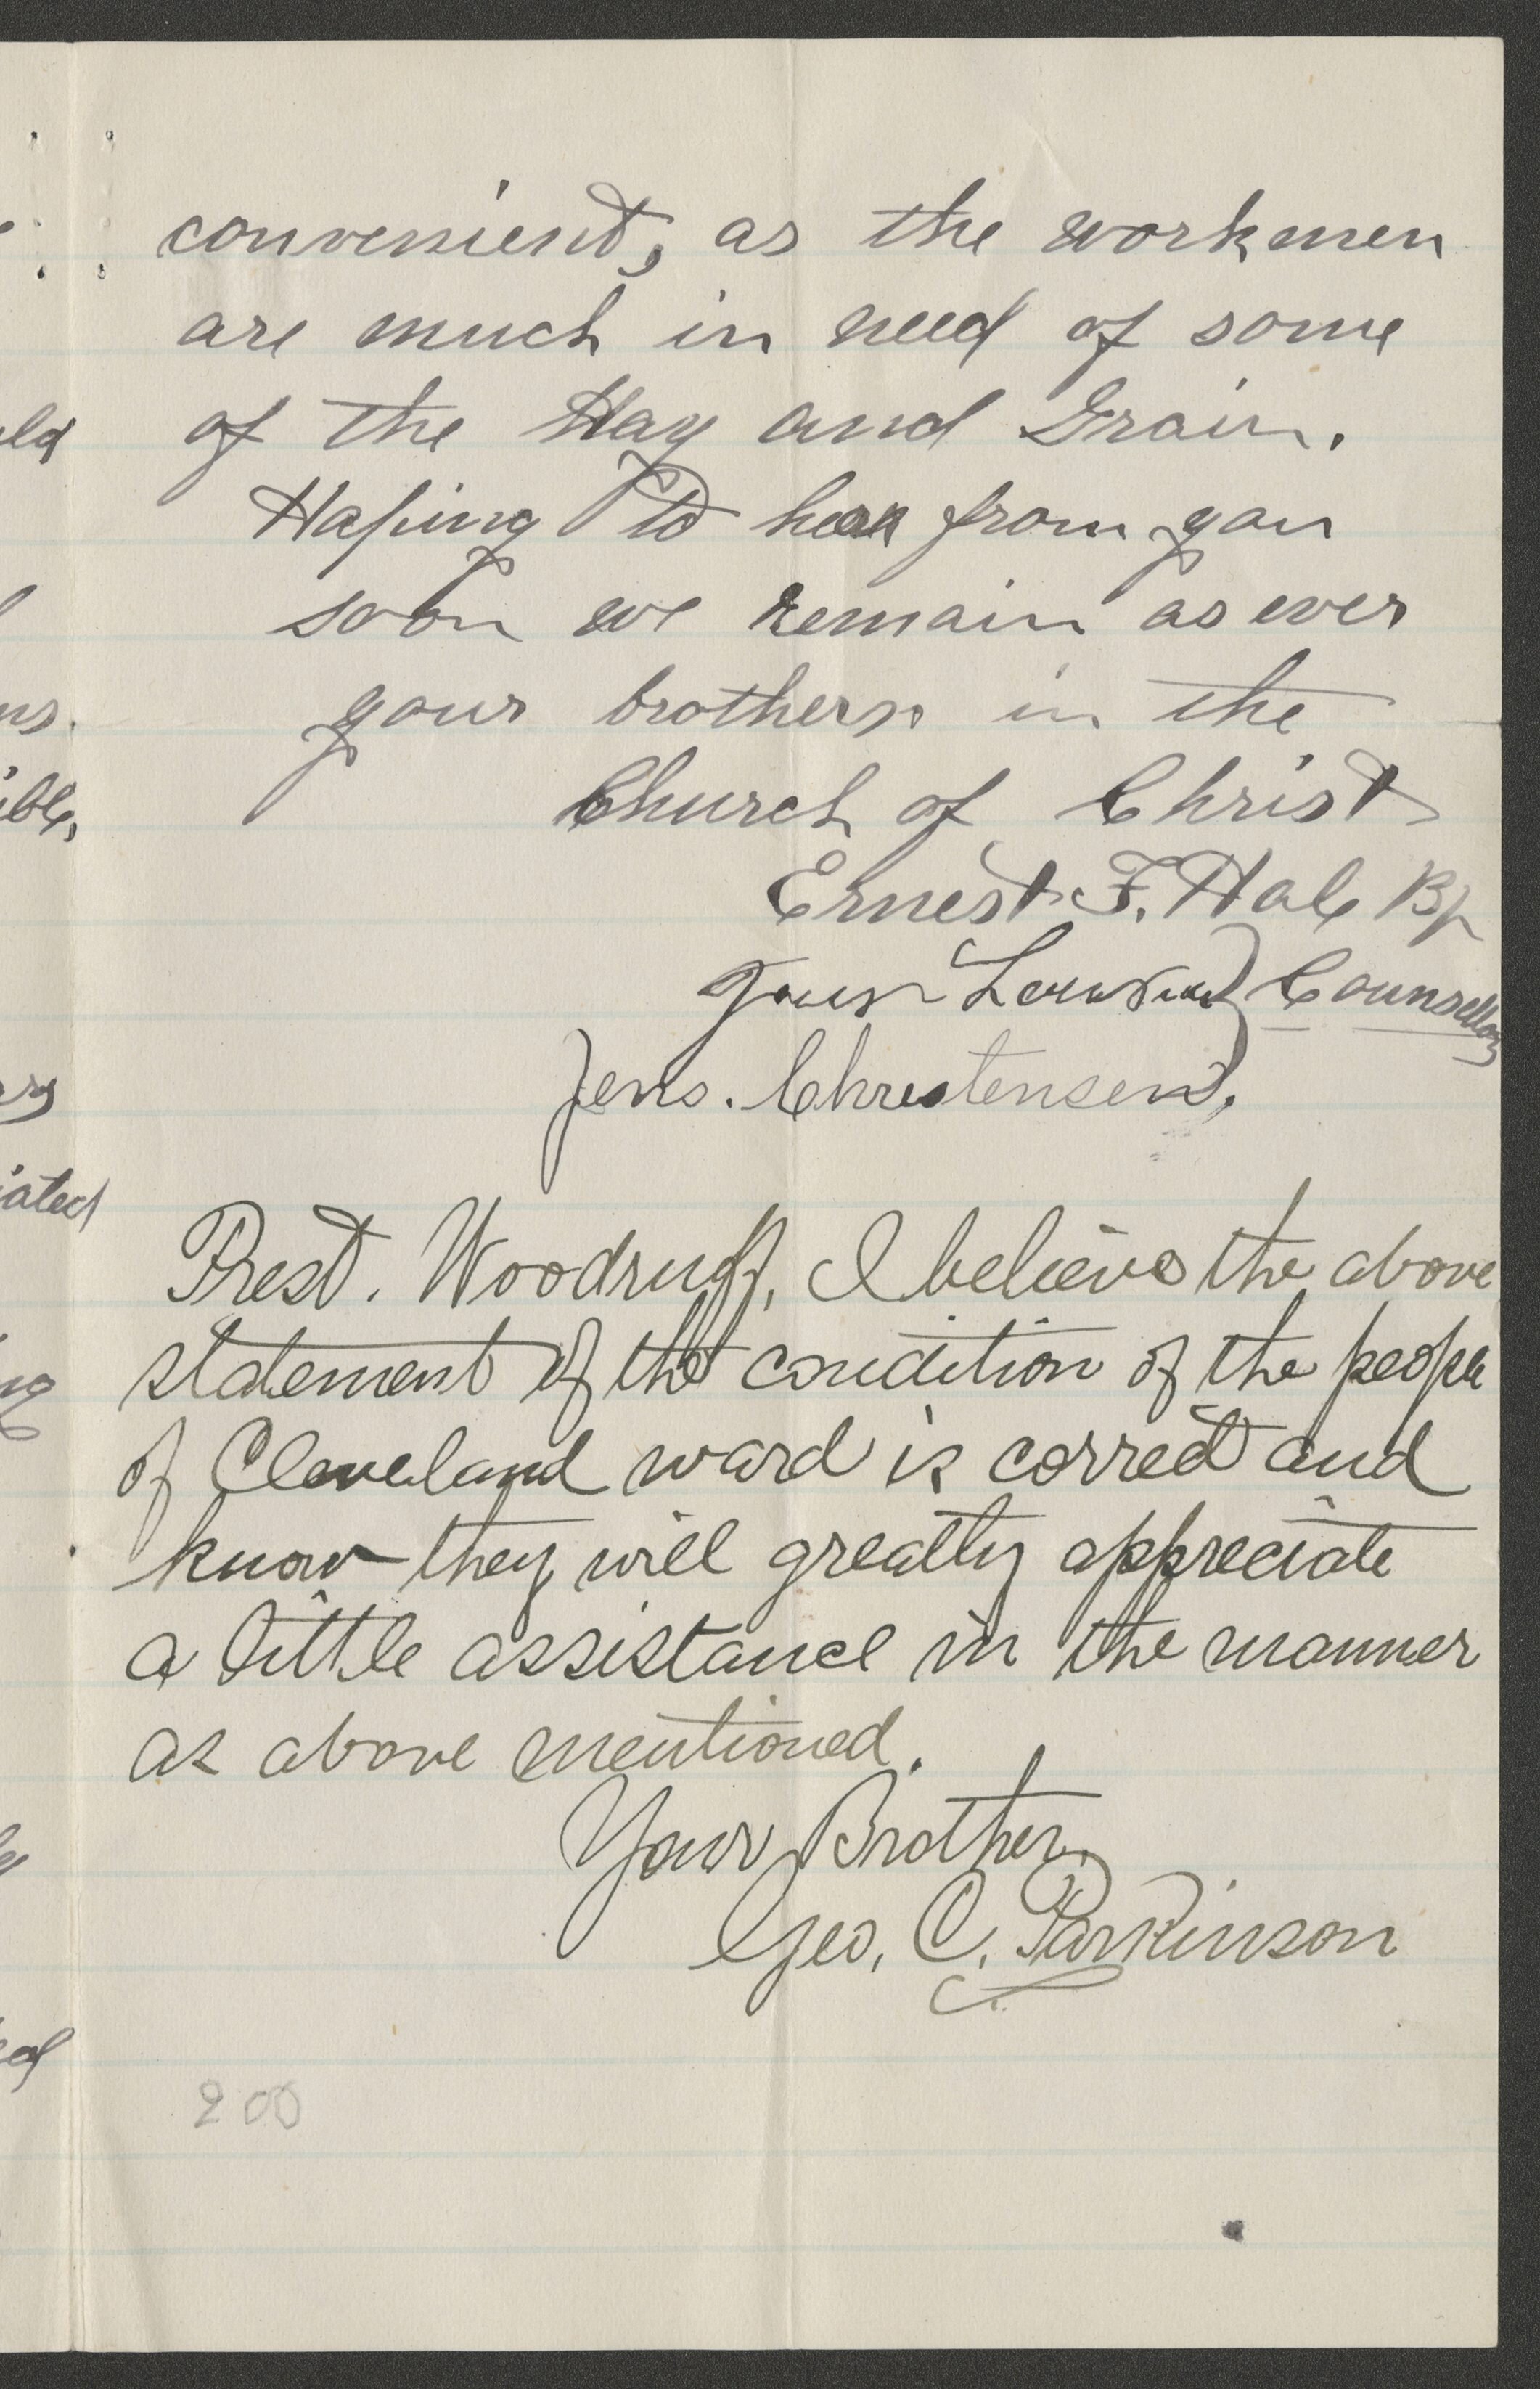 convenient, as the workmen
are much in need of some
of the Hay and Grain.
Hoping to hear from you
soon we remain as ever
your brothers in the
Church of Christ
Ernest F. Hale Bp
Counsellors
Jens. Christensen.
Prest. Woodruff, I believe the above
statement of the condition of the people
of Cleveland ward is correct and
know they will greatly appreciate
a little assistance in the manner
as above mentioned.
Your Brother,
Geo. C. Parkinson
200